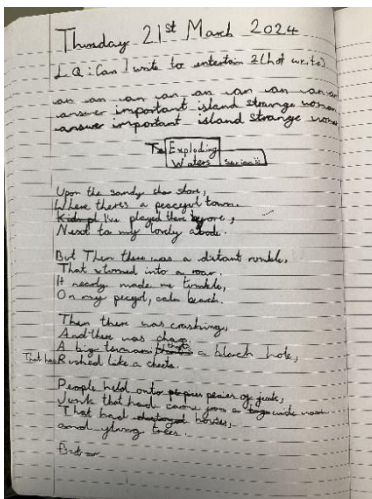 Thursday 21st March 2024
LQ: Can I write to entertain? (hot write)
an an an an an an an an
answer important island strange woman
answer important island strange woman
The Exploding
Waters
Upon the sandy shore,
Where there's a peaceful town.
Kids I've played there before,
Next to my lovely abode.
But Then there was a distant rumble,
That turned into a roar.
It nearly made me tumble,
On my peaceful, calm beach.
Then there was crashing,
And there was chaos.
A big tsunami a black hole,
That had Rushed like a cheeta.
People held onto pieces of junk,
Junk that had come from a wide
That had houses,
and flying trees.
But